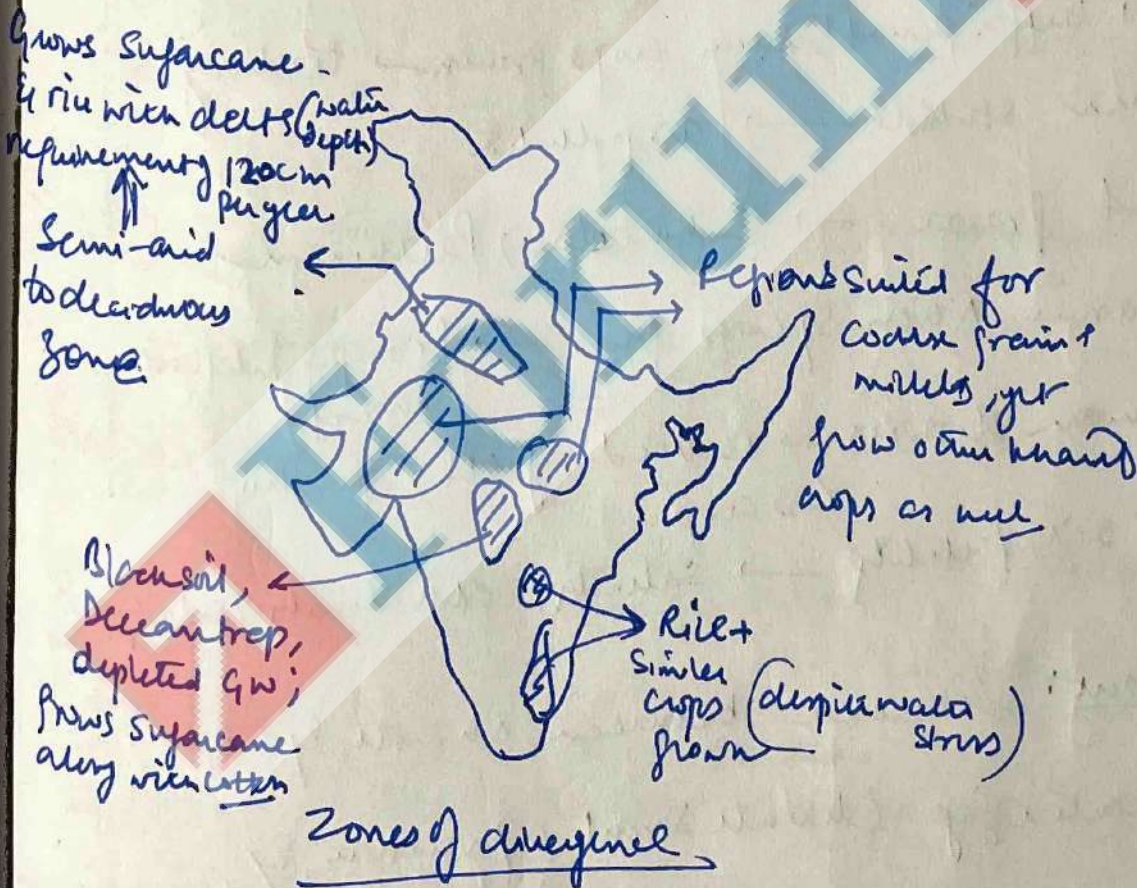 Grows Sugarcane -
& rice with delta (water
depth)
requirement of 120cm
per year
Semi-arid
to deciduous
Zone
Regions suited for
coarse grain +
millets, yet
grow other
crops as well
Black soil,
Deccan trap,
depleted GW;
Grows Sugarcane
along with cotton
Rice +
Similar
crops (despite water
stress)
grown
Zones of divergence
Forum